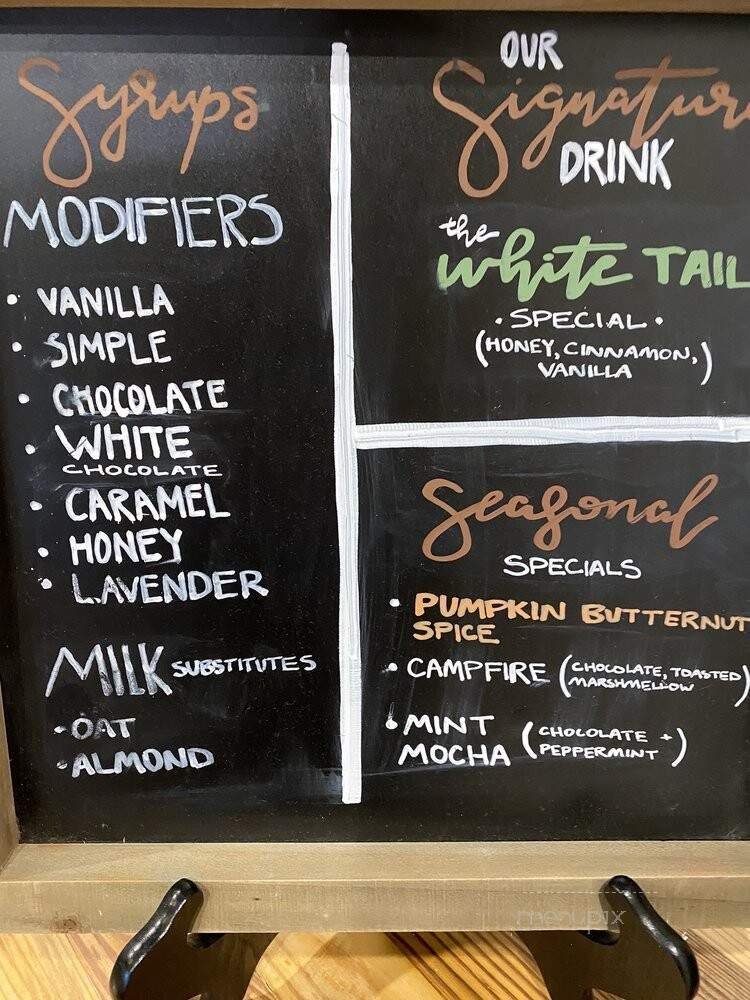 Syrups
MODIFIERS
• VANILLA
• SIMPLE
• CHOCOLATE
• WHITE
CHOCOLATE
• CARAMEL
• HONEY
• LAVENDER
MILK SUBSTITUTES
- OAT
- ALMOND
OUR
Signatur
DRINK
the
white TAIL
• SPECIAL •
(HONEY, CINNAMON,
VANILLA)
Seasonal
SPECIALS
• PUMPKIN BUTTERNUT
SPICE
• CAMPFIRE (CHOCOLATE, TOASTED
MARSHMELLOW)
• MINT
MOCHA (CHOCOLATE +
PEPPERMINT)
menupix